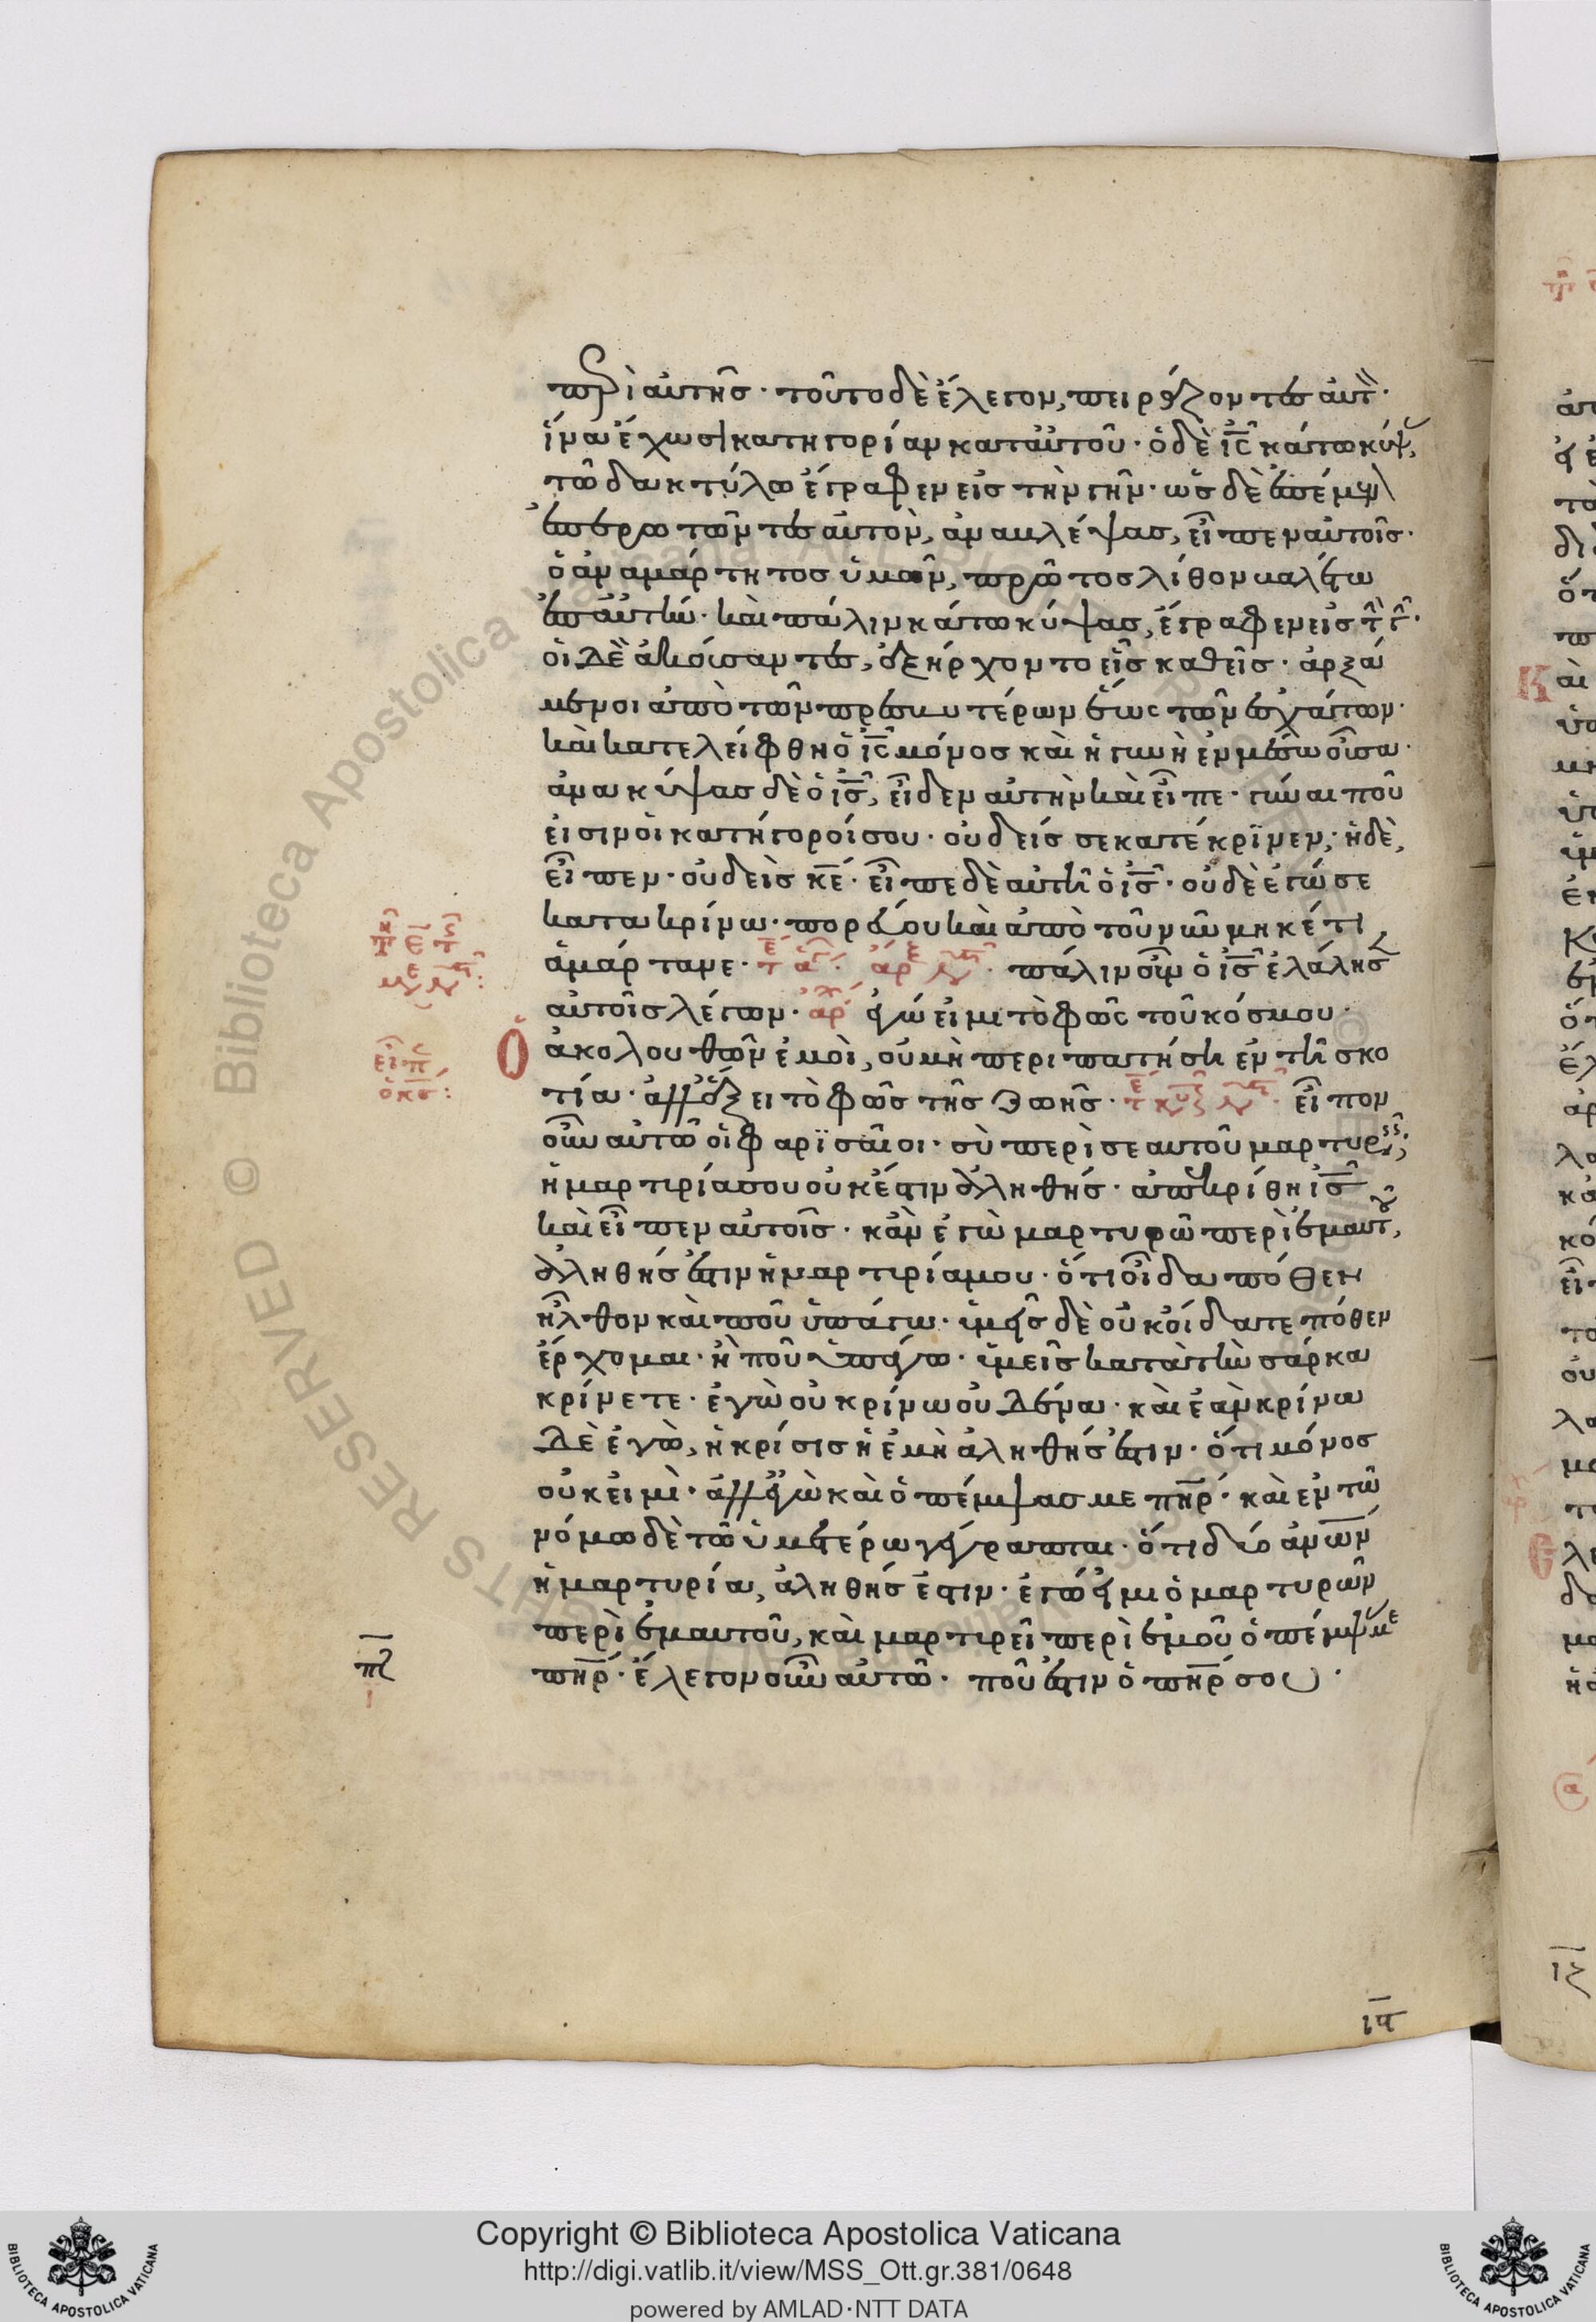 περὶ αὐτῆς· τοῦτο δὲ ἔλεγον, πειράζοντες αὐτ·
ἵνα ἔχωσι κατηγορίαν κατ αὐτοῦ· ὁ δὲ ι̅ς̅ κάτω κύψ,
τῶ δακτύλω ἔγραφεν εἰς τὴν γῆν· ὡς δὲ ἐπέμεν
ἐπερωτῶντες αὐτὸν, ἀναβλέψας, εἶπεν αὐτοῖς·
ὁ ἀναμάρτητος ὑμῶν, πρῶτος λίθον βαλέτω
ἐπ αὐτήν· καὶ πάλιν κάτω κύψας, ἔγραφεν εἰς τ γ·
οἱ δὲ ἀκούσαντες, ἐξήρχοντο εἷς καθεῖς· ἀρξά
μενοι ἀπὸ τῶν πρεσβυτέρων ἕως τῶν ἐσχάτων·
καὶ κατελείφθη ὁ ι̅ς̅ μόνος καὶ ἡ γυνὴ ἐν μέσω οὖσα·
ἀνακύψας δὲ ὁ ι̅ς̅, εἶδεν αὐτὴν καὶ εἶπε· γύναι ποῦ
εἰσιν οἱ κατήγοροί σου· οὐδείς σε κατέκρϊνεν; ἡ δὲ,
εἶπεν· οὐδεὶς κ̅ε̅· εἶπε δὲ αὐτῆ ὁ ι̅ς̅· οὐδὲ ἐγώ σε
κατακρίνω· πορεύου καὶ ἀπὸ τοῦ νῦν μηκέτι
ἁμάρτανε· πάλιν οὖν ὁ ι̅ς̅ ἐλάλησ
αὐτοῖς λέγων· ἀρ ἐγώ εἰμι τὸ φῶς τοῦ κόσμου·
Ὁ ἀκολουθῶν ἐμοὶ, οὐ μὴ περιπατήσει ἐν τῆ σκο
τία· ἀλλ ἕξει τὸ φῶς τῆς ζωῆς· εἶπον
οὖν αὐτῶ οἱ φαρϊσαῖοι· σὺ περὶ σεαυτοῦ μαρτυρεῖς;
ἡ μαρτιρία σου οὐκ έστιν ἀληθής· ἀπεκρίθη ι̅ς̅
καὶ εἶπεν αὐτοῖς· κἂν ἐγὼ μαρτυρῶ περὶ ἐμαυτ,
ἀληθής ἐστιν ἡ μαρτιρία μου· ὅτι οἶδα πόθεν
ἦλθον καὶ ποῦ ὑπάγω· ὑμεῖς δὲ οὐκ οίδατε πόθεν
ἔρχομαι· ἢ ποῦ ὑπάγω· ὑμεῖς κατὰ τὴν σάρκα
κρίνετε· ἐγὼ οὐ κρίνω οὐδένα· κὰι ἐὰν κρίνω
δὲ ἐγὼ, ἡ κρίσις ἡ ἐμὴ ἀληθής ἐστιν· ὅτι μόνος
οὐκ εἰμὶ· ἀλλ ἐγὼ κὰι ὁ πέμψας με π̅η̅ρ̅· κὰι ἐν τῶ
νόμω δὲ τῶ ὑμετέρω γέγραπται· ὅτι δύο ἀν̅ω̅ν̅
ἡ μαρτυρία, ἀληθής ἐστιν· ἐγώ εἰμι ὁ μαρτυρῶν
περὶ ἐμαυτοῦ, κὰι μαρτιρεῖ περὶ ἐμοῦ ὁ πέμψ με
π̅η̅ρ̅· ἔλεγον οὖν αὐτῶ· ποῦ ἐστιν ὁ π̅η̅ρ̅ σου·
Copyright © Biblioteca Apostolica Vaticana
http://digi.vatlib.it/view/MSS_Ott.gr.381/0648
powered by AMLAD·NTT DATA